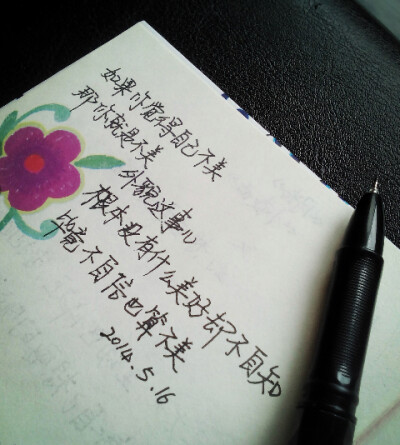 如果你觉得自己不美
那你就是不美
外貌这事儿
根本没有什么美好却不自知
毕竟不自信也算不美
2014.5.16